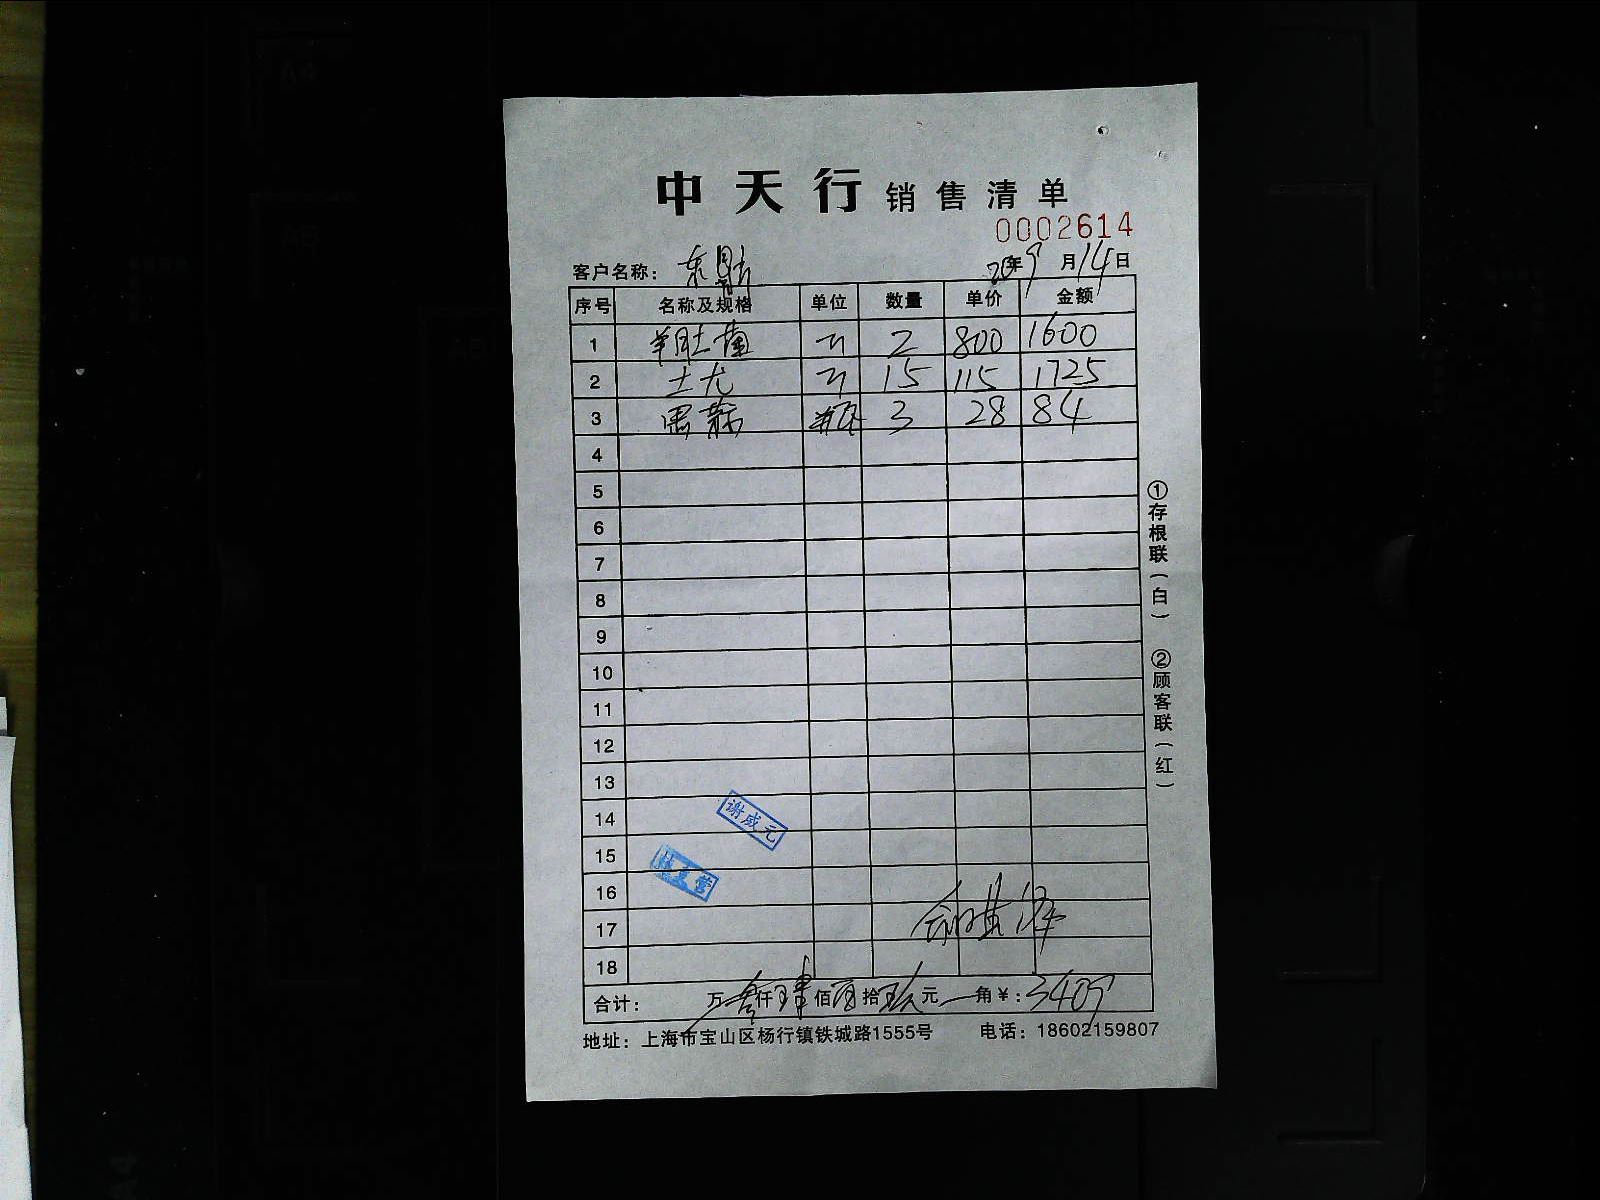 中天行 销售清单
0002614
客户名称： 年9月14日
序号 名称及规格 单位 数量 单价 金额
1 羊肚菌 斤 2 800 1600
2 土尤 斤 15 115 1725
3 黑蒜 瓶 3 28 84
4
5
6
7
8
9
10
11
12
13
14
15
16
17
18
谢成元
合计： 万叁仟肆佰 拾玖元 角¥：3409
地址：上海市宝山区杨行镇铁城路1555号 电话：18602159807
①存根联（白） ②顾客联（红）